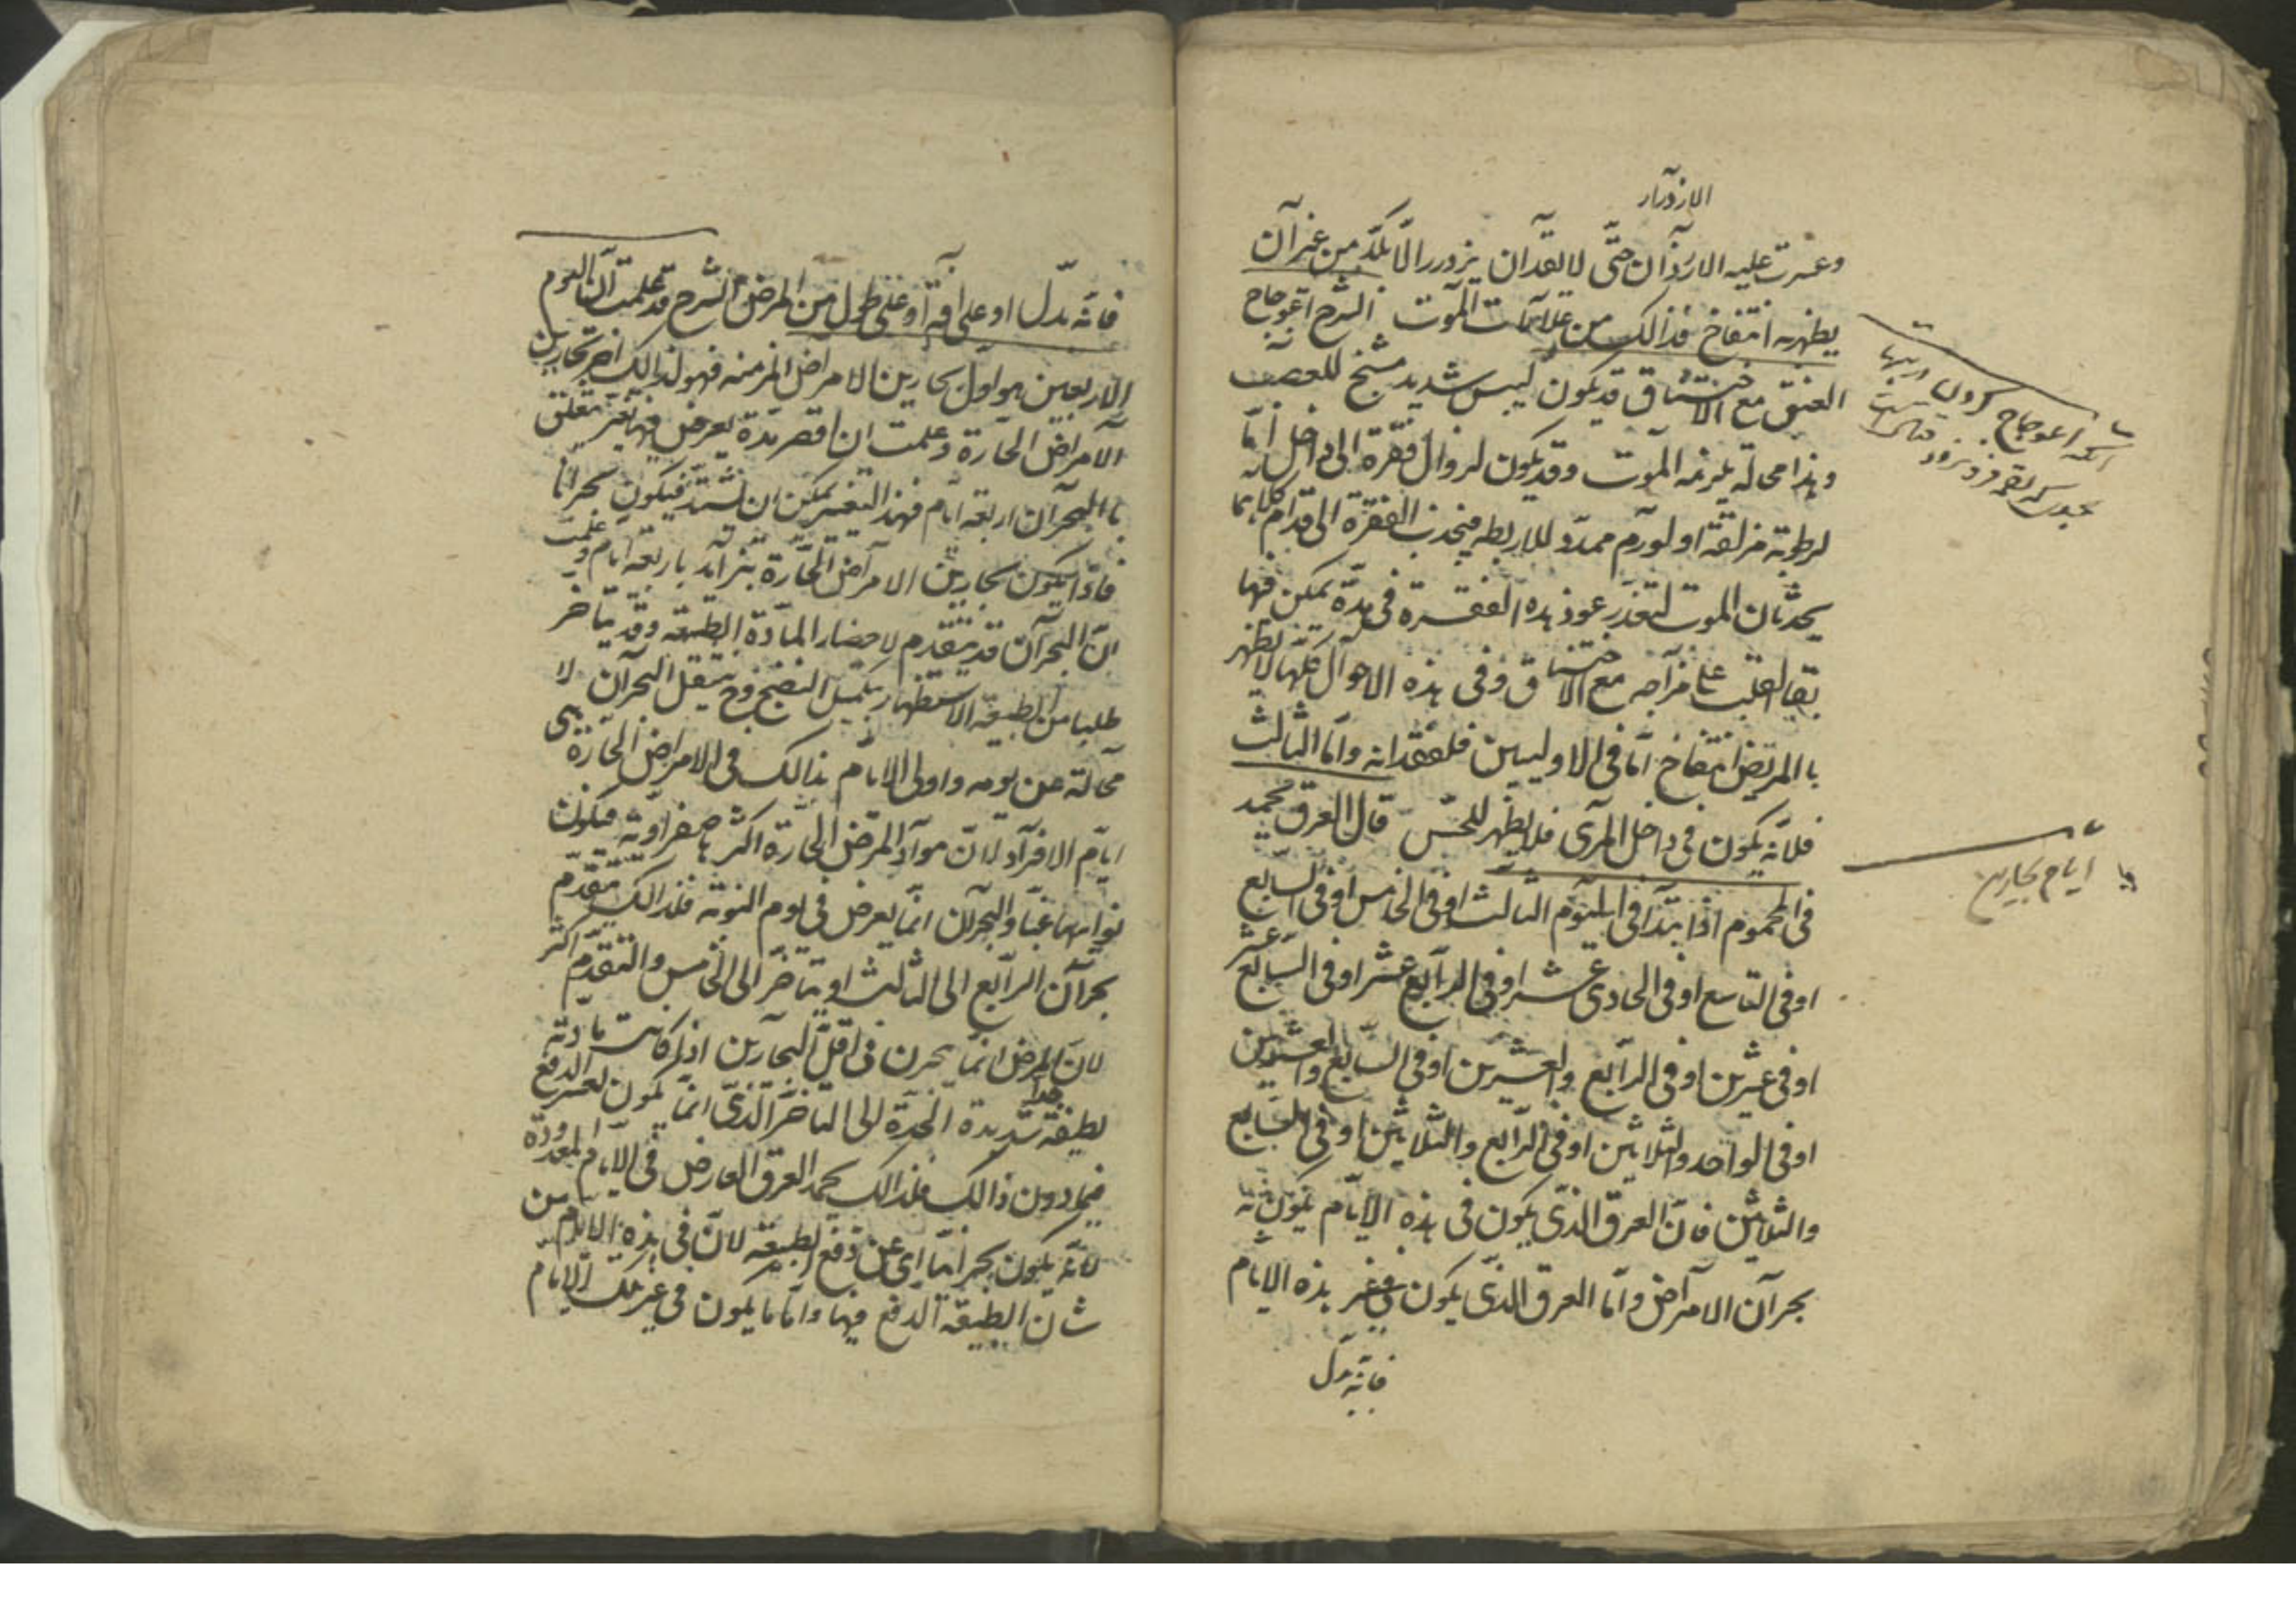 الازورار
وعسرت عليه الازدران حتى لا يقدر ان يزدرد الا بكد من غير ان
يظهر به انتفاخ فذالك من علامات الموت الشرح اعوجاج
العنق مع الاختناق قد يكون ليبس شديد مشنج للعصب
وهذا محالة يلزمه الموت وقد يكون لزوال فقرة الى داخل اما
لرطوبة مزلقة او لورم ممدد للاربطه فيجذب الفقرة الى قدام كلاهما
يحدثان الموت لتعذر عود هذه الفقرة فى مدة يمكن فيها
بقا القلب على مزاجه مع الاختناق وفى هذه الاحوال كلها لا يظهر
با المريض انتفاخ اما فى الاوليين فلفقدانه واما الثالث
فلانه يكون فى داخل المرى فلا يظهر للحس قال العرق يحمد
فى المحموم اذا ابتدا فى اليوم الثالث او فى الخامس او فى السابع
او فى التاسع او فى الحادى عشر او فى الرابع عشر او فى السابع عشر
او فى عشرين او فى الرابع والعشرين او فى السابع والعشرين
او فى الواحد والثلاثين او فى الرابع والثلاثين او فى السابع
والثلاثين فان العرق الذى يكون فى هذه الايام يكون به
بحران الامراض واما العرق الذى يكون فى غير هذه الايام
فانه يدل
اعوجاج كردن
ايام بحارين
فانه يدل او على افة او على طول من المرض الشرح قد علمت ان اليوم
الاربعين هو اول بحارين الامراض المزمنه فهو لذالك اخر بحارين
الامراض الحارة وعلمت ان اقصر مدة يعرض فيها تغير متعلق
با البحران اربعة ايام فهذا التغير يمكن ان يشتد فيكون بحرانا
فاذا يكون بحارين الامراض الحارة بتزايد باربعة ايام وعلمت
ان البحران قد يتقدم لاحضار المادة الطبيعه وقد يتاخر
طلبا من الطبيعه الاستظهار بتكميل النضج وح ينتقل البحران لا
محالة عن يومه واولى الايام بذالك فى الامراض الحارة هى
ايام الافراد لان مواد المرض الحارة اكثرها صفراوية فيكون
نوايبها غبا والبحران انما يعرض فى يوم النوبة فلذالك يتقدم
بحران الرابع الى الثالث او يتاخر الى الخامس والتقدم اكثر
لان المرض انما يبحرن فى اقل البحارين اذا كانت مادته
لطيفة شديدة الحدة جدا الى التاخر الذى انما يكون لعسر الدفع
فيما دون ذالك فلذالك يحمد العرق العارض فى الايام المعدودة
لانه يكون بحرانيا اى عن دفع الطبيعة لان فى هذه الايام من
شان الطبيعة الدفع فيها واما ما يكون فى غير تلك الايام